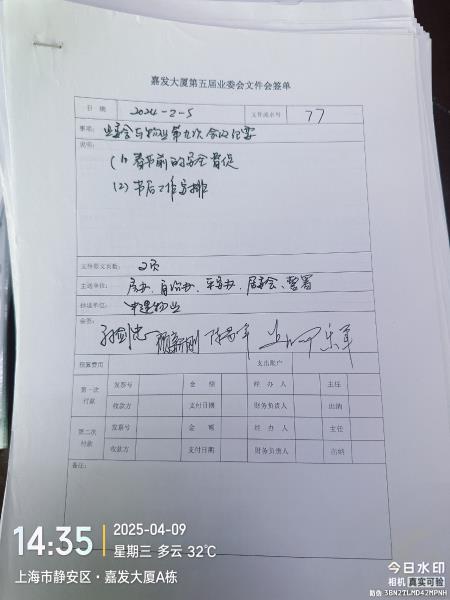 嘉发大厦第五届业委会文件会签单
日 期 2024-2-5 文件流水号 77
事项: 业委会与物业第九次会议纪要
说明:
(1) 春节前的安全督促
(2) 节后工作安排
文件原文页数: 2页
主送单位: 房办、自治办、平安办、居委会、警署
抄送单位: 中建物业
会签:
预算费用 支出账户
第一次付款 发票号 金 额 经 办 人 主任
收款方 支付日期 财务负责人 出纳
第二次付款 发票号 金 额 经 办 人 主任
收款方 支付日期 财务负责人 出纳
备注:
14:35 2025-04-09
星期三 多云 32℃
上海市静安区·嘉发大厦A栋
今日水印
相机 真实可验
防伪 3BN2TLMD42MPNH